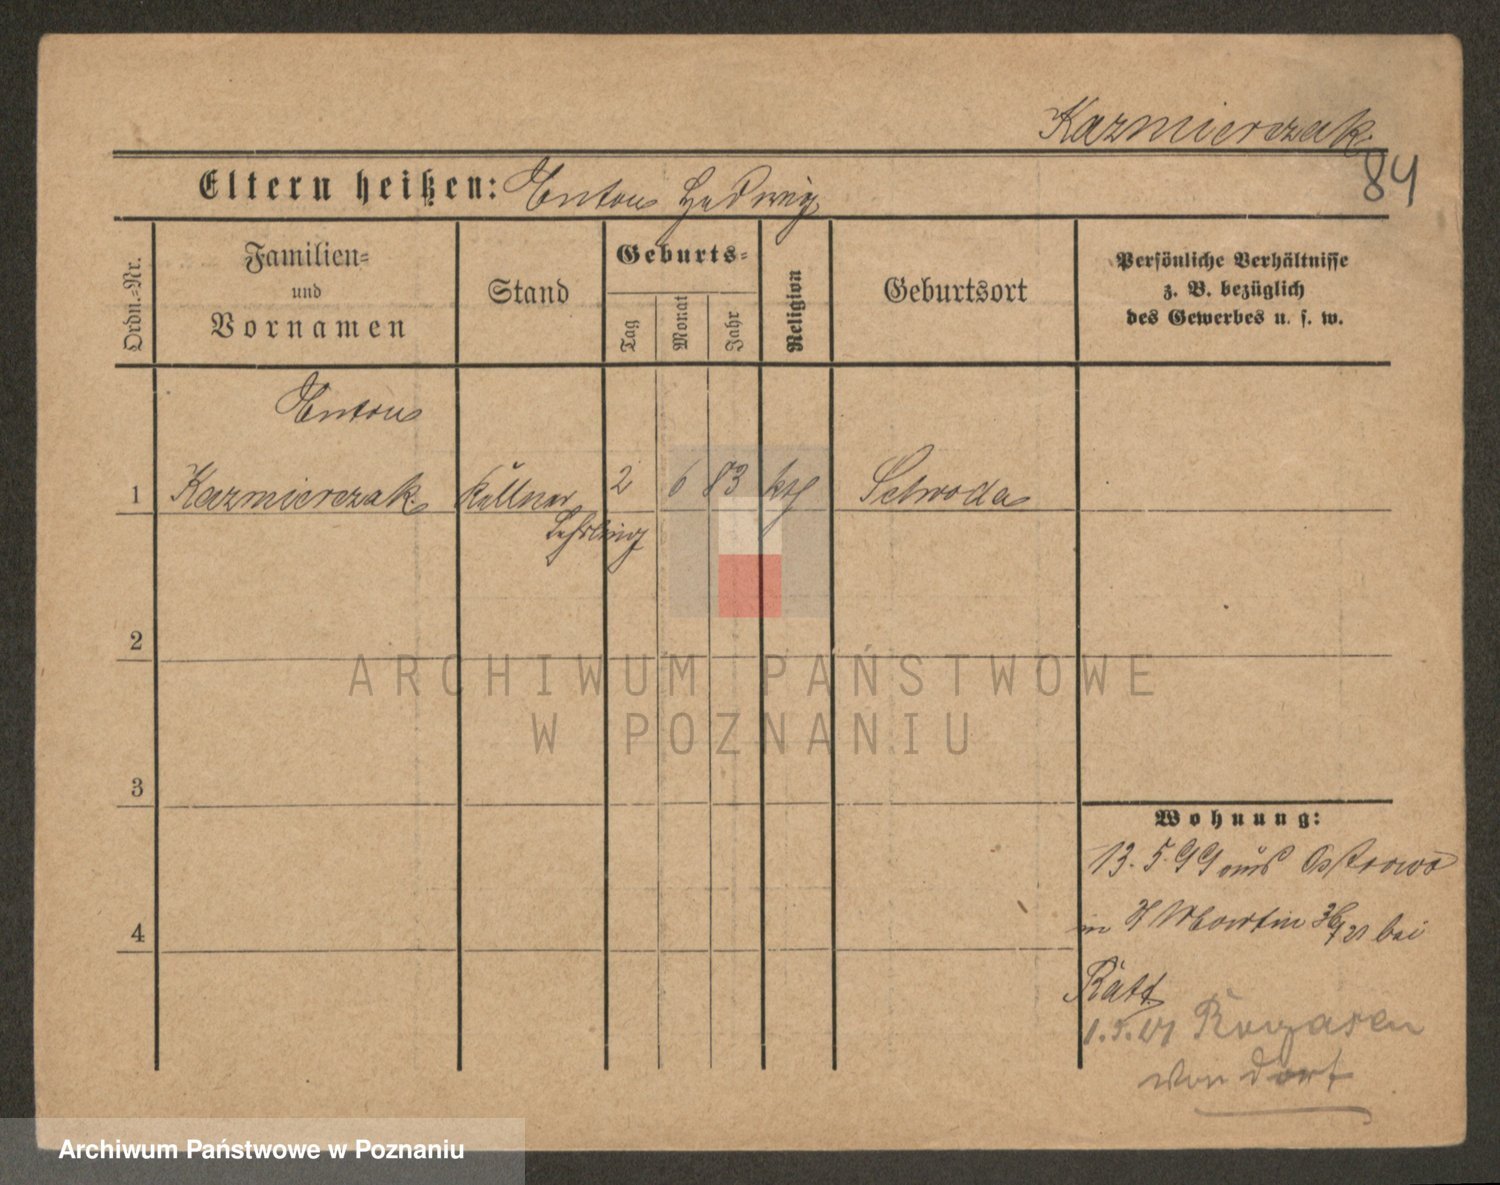 Kazmierczak
84
Eltern heißen: Anton Hedwig
Ordn.-Nr.
Familien-
und
Vornamen
Stand
Geburts-
Tag
Monat
Jahr
Religion
Geburtsort
Persönliche Verhältnisse
z. B. bezüglich
des Gewerbes u. s. w.
Anton
1 Kazmierczak Kellner 2 6 83 kth Schroda
Lehrling
2
3
4
Wohnung:
13. 5. 99 aus Ostrowo
in St Martin bei
Rätt
Rogasen
von dort
ARCHIWUM PAŃSTWOWE
W POZNANIU
Archiwum Państwowe w Poznaniu